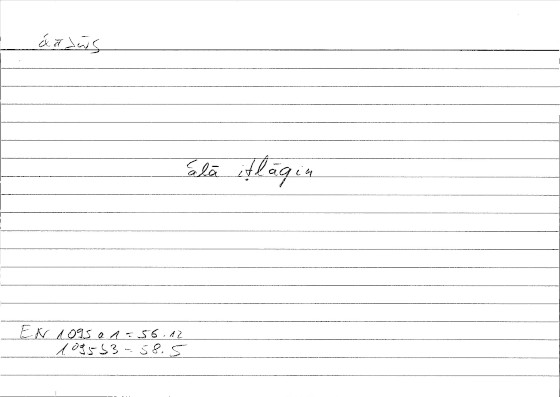 ἁπλῶς
ʿalā iṭlāqin
EN 1095a1 = 56.12
1095b3 = 58.5